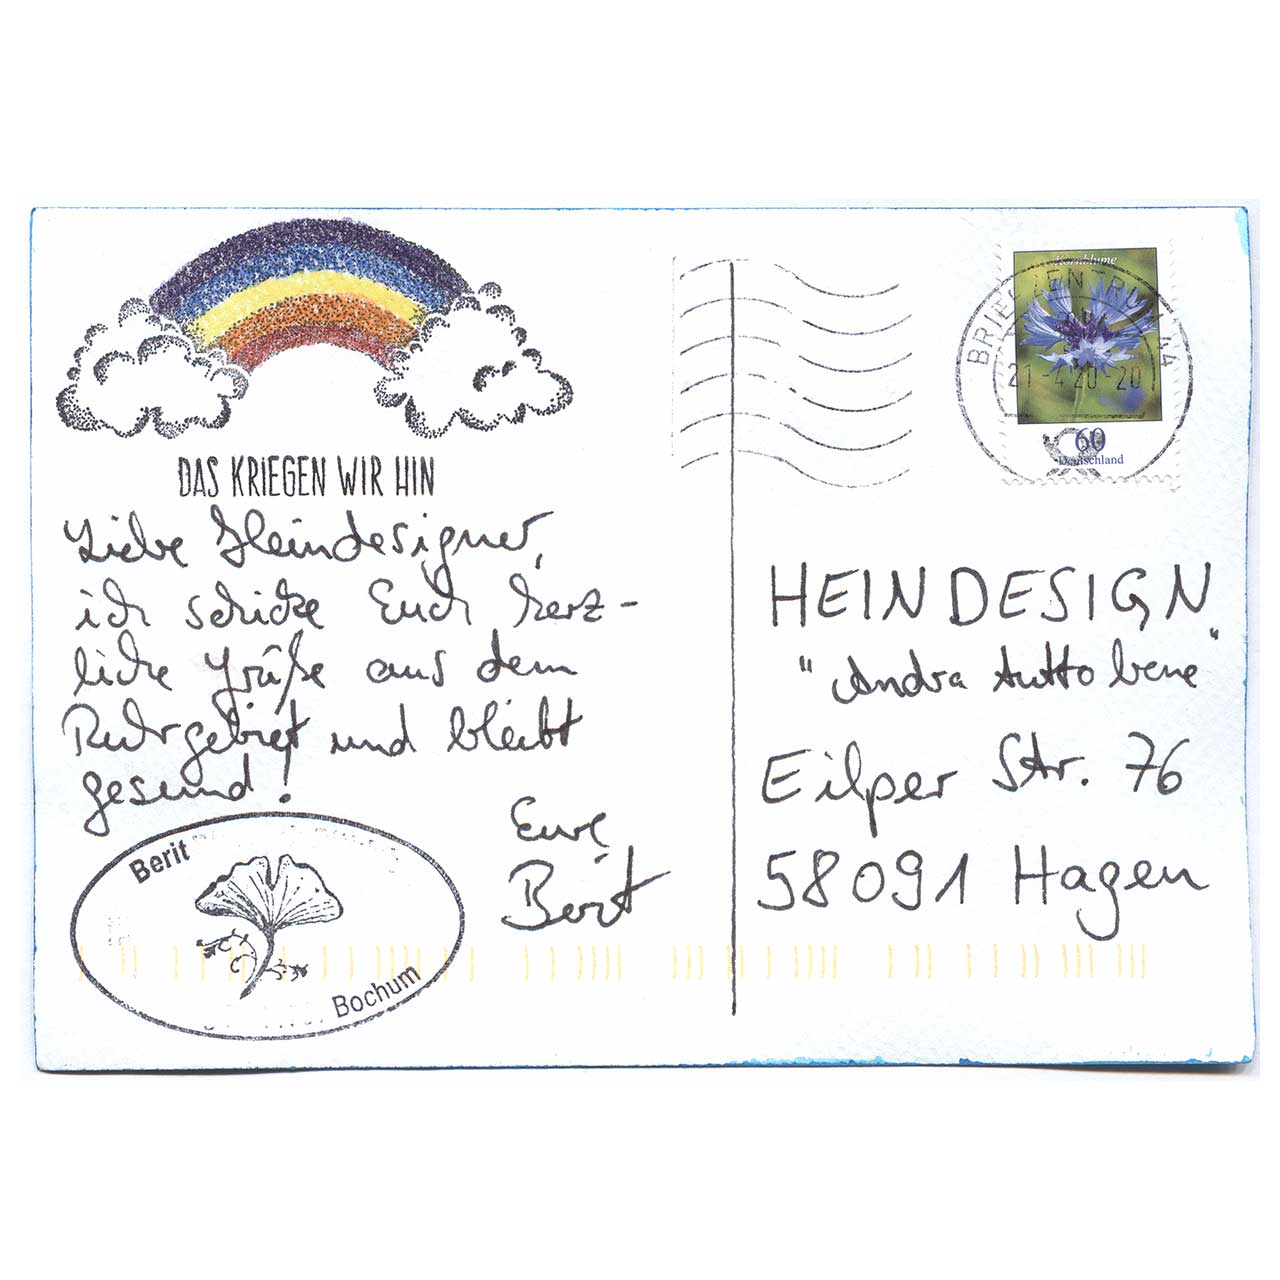 DAS KRIEGEN WIR HIN
Liebe Heindesigner,
ich schicke Euch herz-
liche Grüße aus dem
Ruhrgebiet und bleibt
gesund!
Eure
Berit
Berit
Bochum
Kornblume
BRIEFZENTRUM 44
21.-4.20-20
60
Deutschland
HEINDESIGN
"Andra tutto bene"
Eilper Str. 76
58091 Hagen